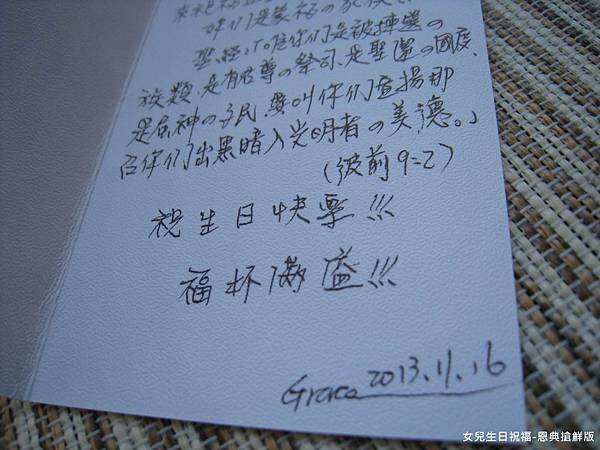 妳們是蒙福的家族
聖經:「唯你們是被揀選の
族類,是有君尊の祭司,是聖潔の國度,
是屬神の子民,要叫你們宣揚那
召你們出黑暗入光明者の美德。」
(彼前9=2)
祝生日快樂!!!
福杯滿溢!!!
Grace 2013.11.16
女兒生日祝福-恩典搶鮮版